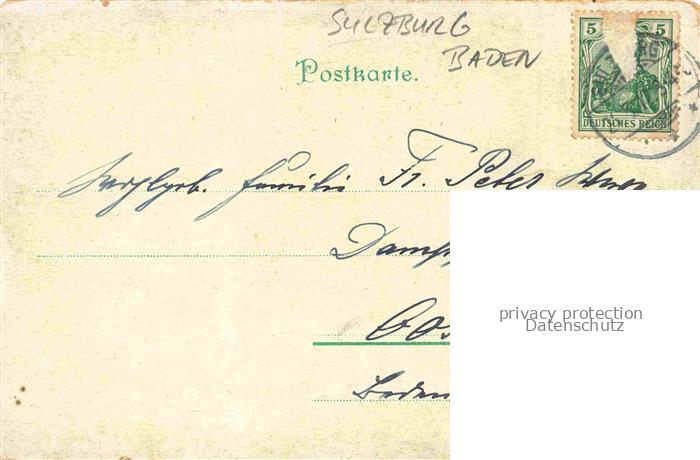 SULZBURG
BADEN
Postkarte.
5 5
DEUTSCHES REICH
Familie Fr. Peter
Dampf
Baden
privacy protection
Datenschutz